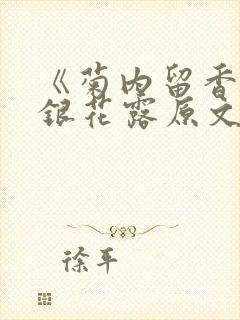 《菊内留香
银花露原文
徐平